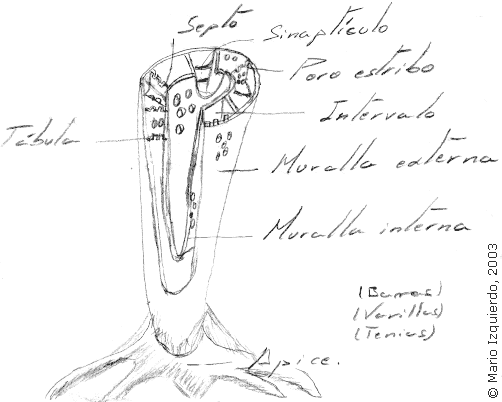 Septo
Sinaptículo
Poro estribo
Intervalo
Tábula
Muralla externa
Muralla interna
(Barras)
(Varillas)
(Tenias)
Apice.
© Mario Izquierdo, 2003